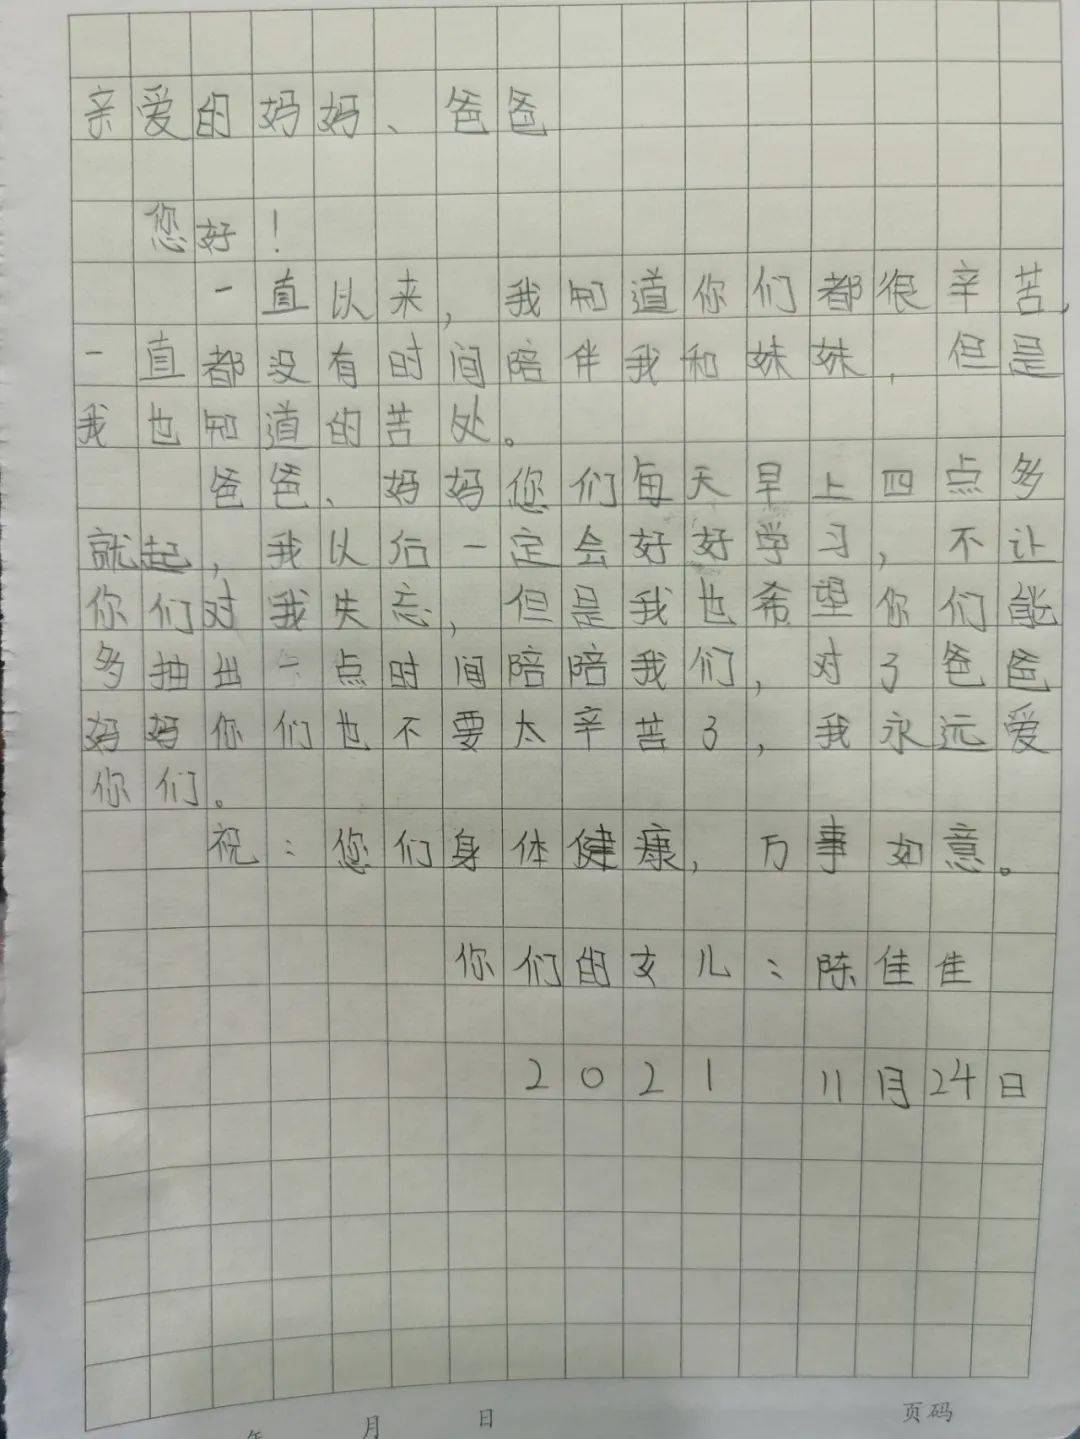 亲爱的妈妈、爸爸
您好！
一直以来，我知道你们都很辛苦，
一直都没有时间陪伴我和妹妹，但是
我也知道的苦处。
爸爸、妈妈您们每天早上四点多
就起，我以后一定会好好学习，不让
你们对我失忘，但是我也希望你们能
多抽出一点时间陪陪我们，对了爸爸
妈妈你们也不要太辛苦了，我永远爱
你们。
祝：您们身体健康，万事如意。
你们的女儿：陈佳佳
2021 11月24日
年 月 日 页码